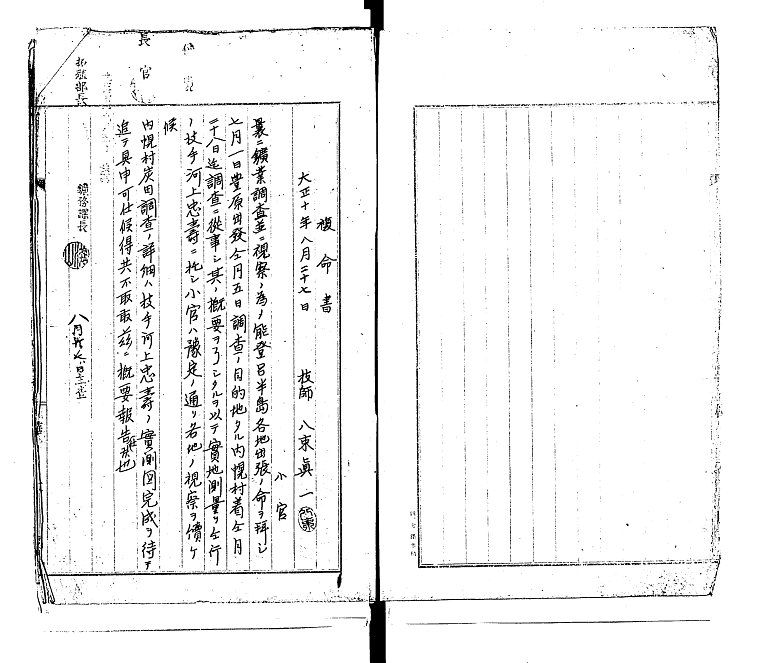 復命書
大正十年八月二十七日
技師 八束眞一
小官
曩ニ鑛業調査並ニ視察ノ為メ能登呂半島各地出張ノ命ヲ拜シ
七月一日豊原出發仝月五日調査ノ目的地タル内幌村着仝月
二十八日迄調査ニ從事シ其ノ概要ヲ了シタルヲ以テ實地測量ヲ仝行
ノ技手河上忠壽ニ托シ小官ハ豫定ノ通リ各地ノ視察ヲ
候
内幌村炭田調査ノ詳細ハ技手河上忠壽ノ實測図完成ヲ待チ
追テ具申可仕候得共不取敢茲ニ概要報告候也
長官
拓殖部長
總務課長